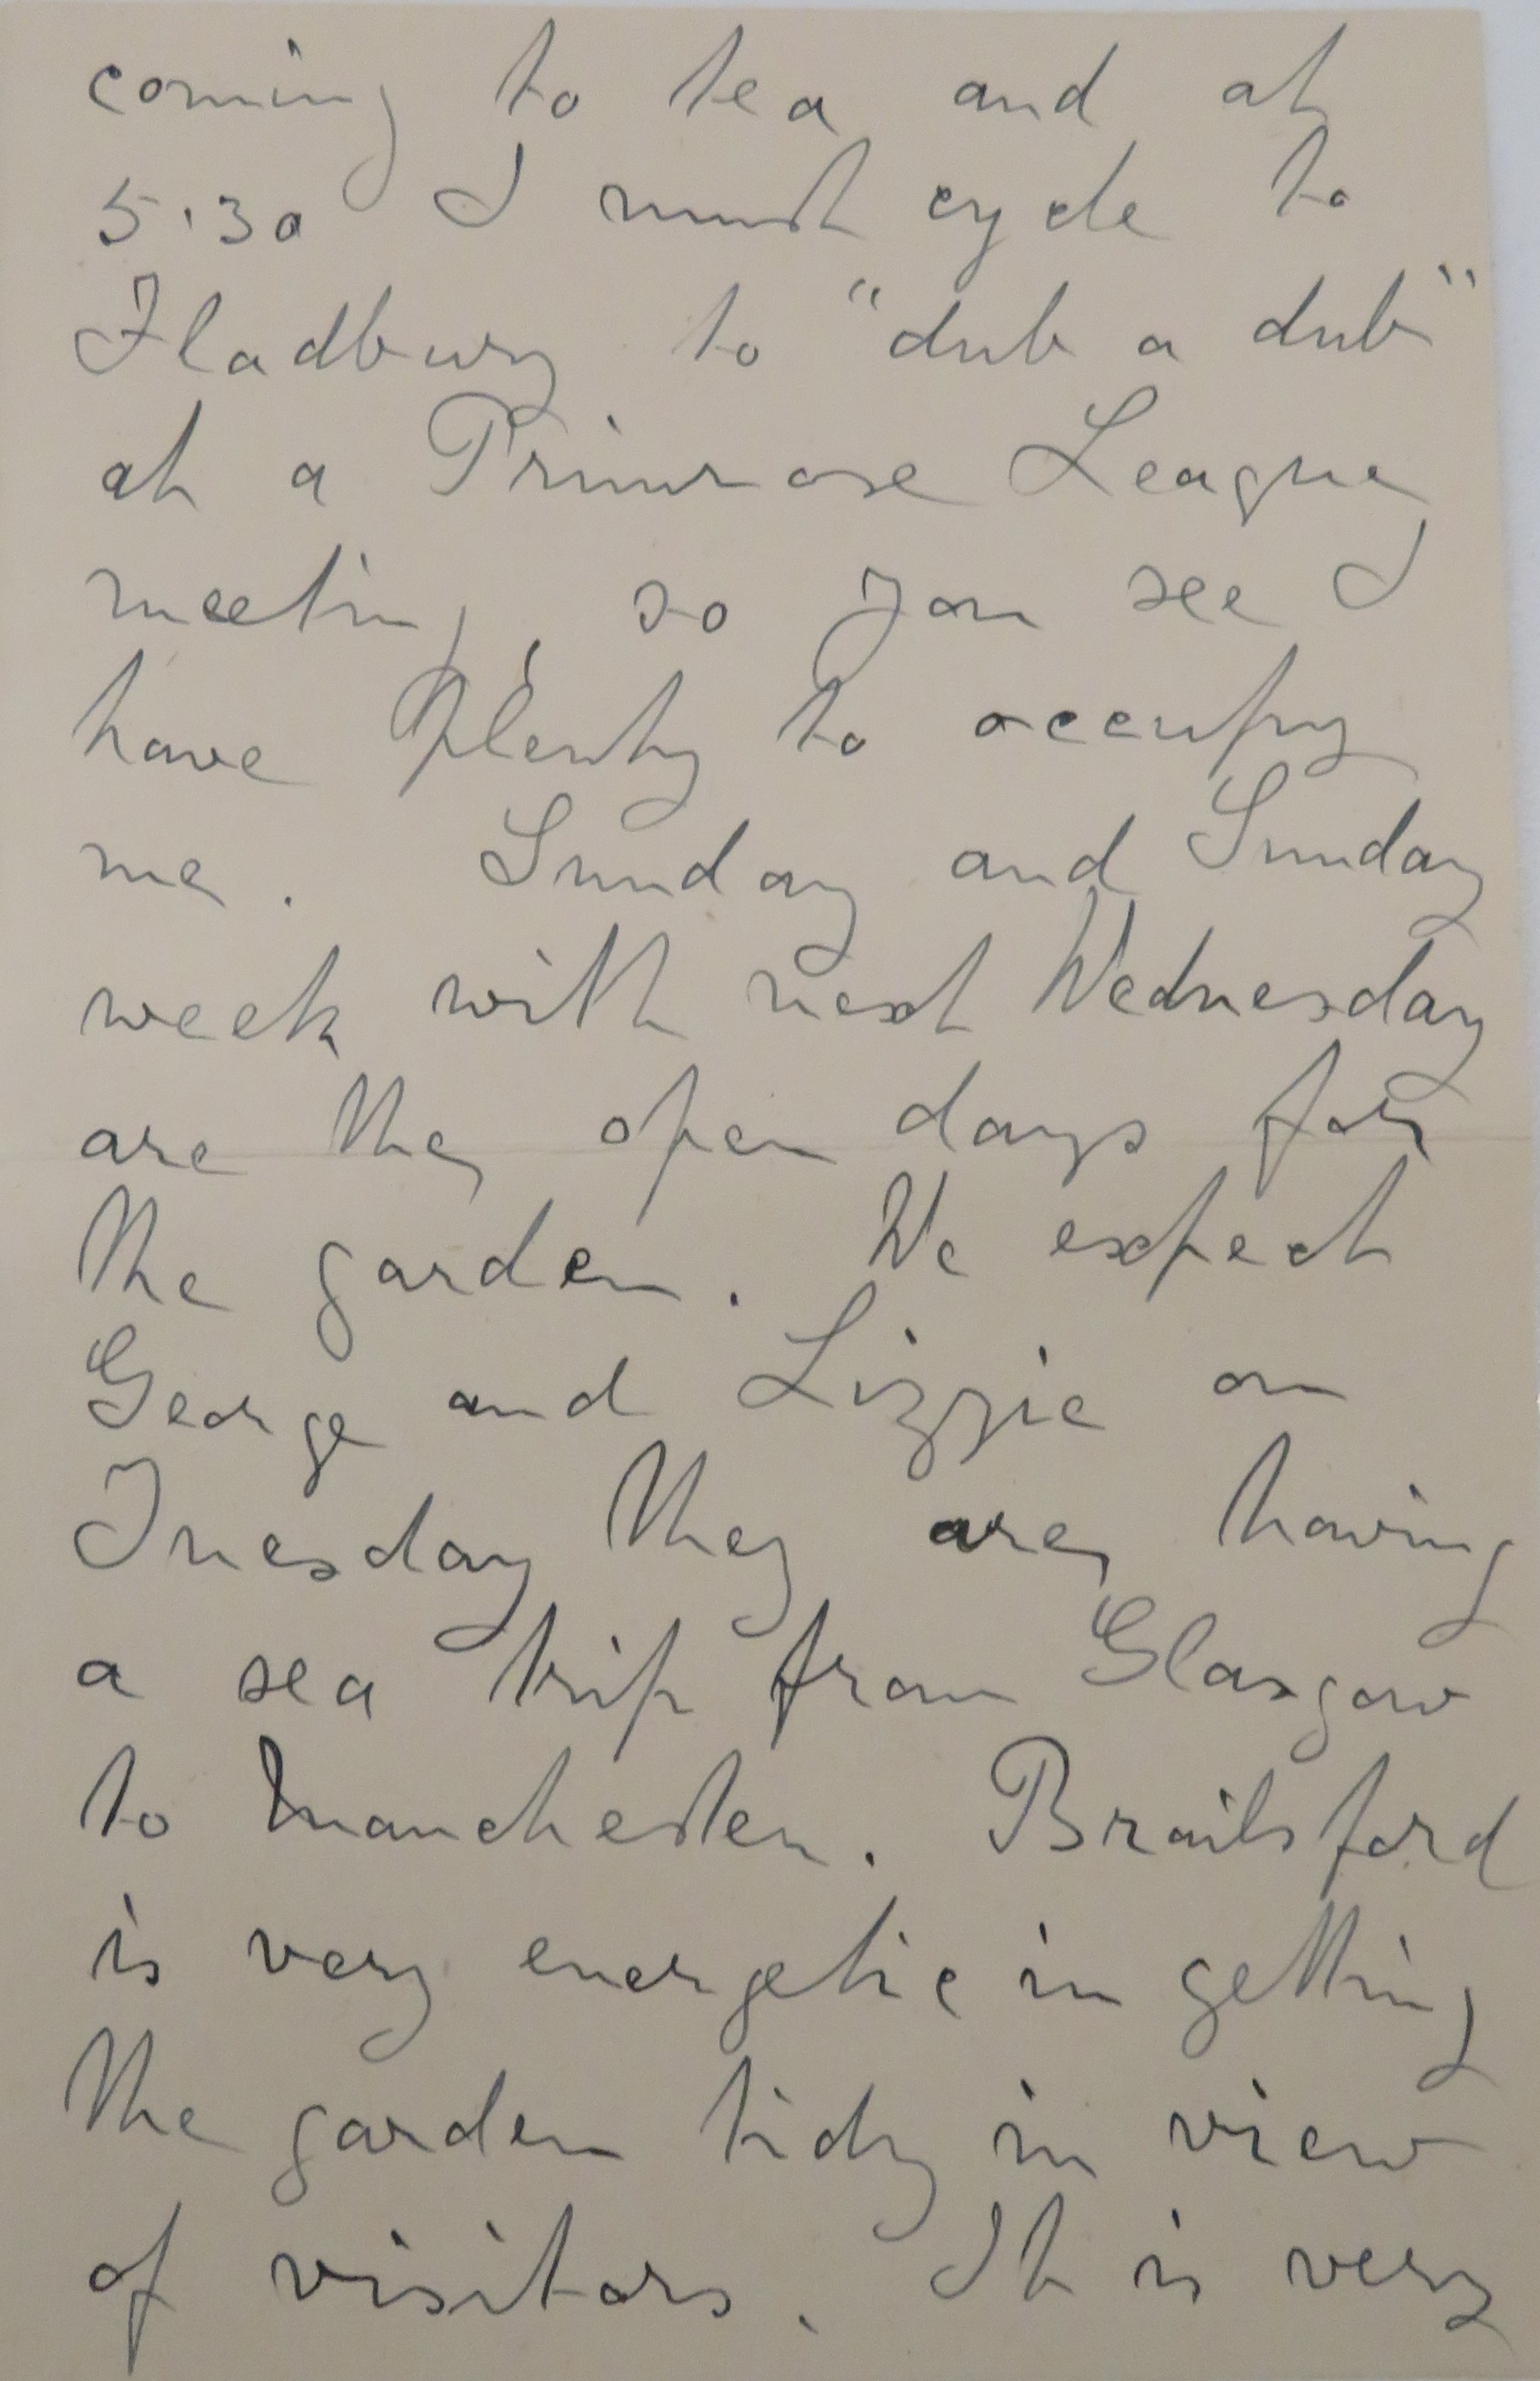 coming to tea and at
5.30 I must cycle to
Fladbury to "dub a dub"
at a Primrose League
meeting, so you see I
have plenty to occupy
me. Sunday and Sunday
week with next Wednesday
are the open days for
the garden. We expect
George and Lizzie on
Tuesday they are having
a sea trip from Glasgow
to Manchester. Brailsford
is very energetic in getting
the garden tidy in view
of visitors. It is very